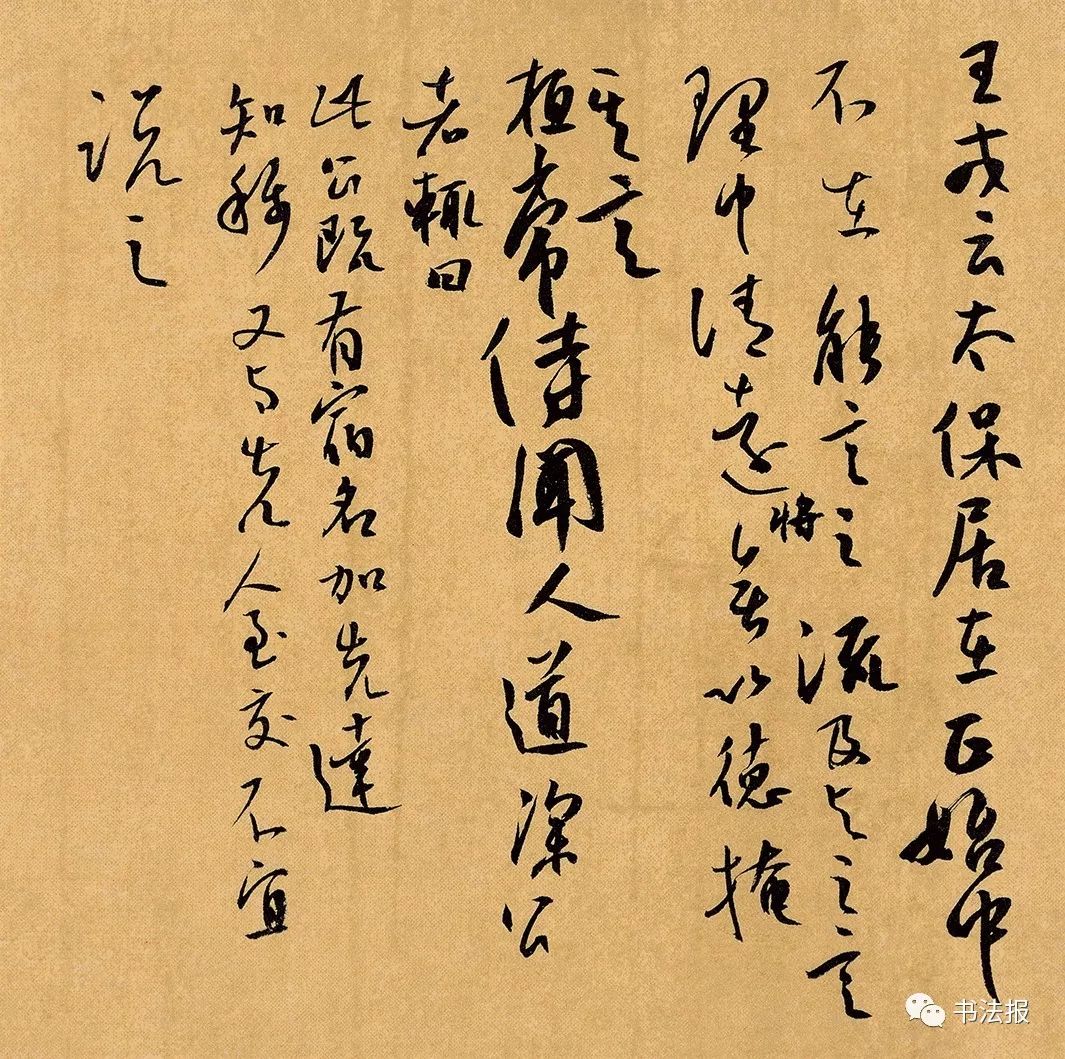 王戎云太保居在正始中
不在能言之流及与之言
理中清遠將無以德掩
其言
桓常侍聞人道深公
者輒曰
此公既有宿名加先達
知稱又与先人至交不宜
說之
书法报